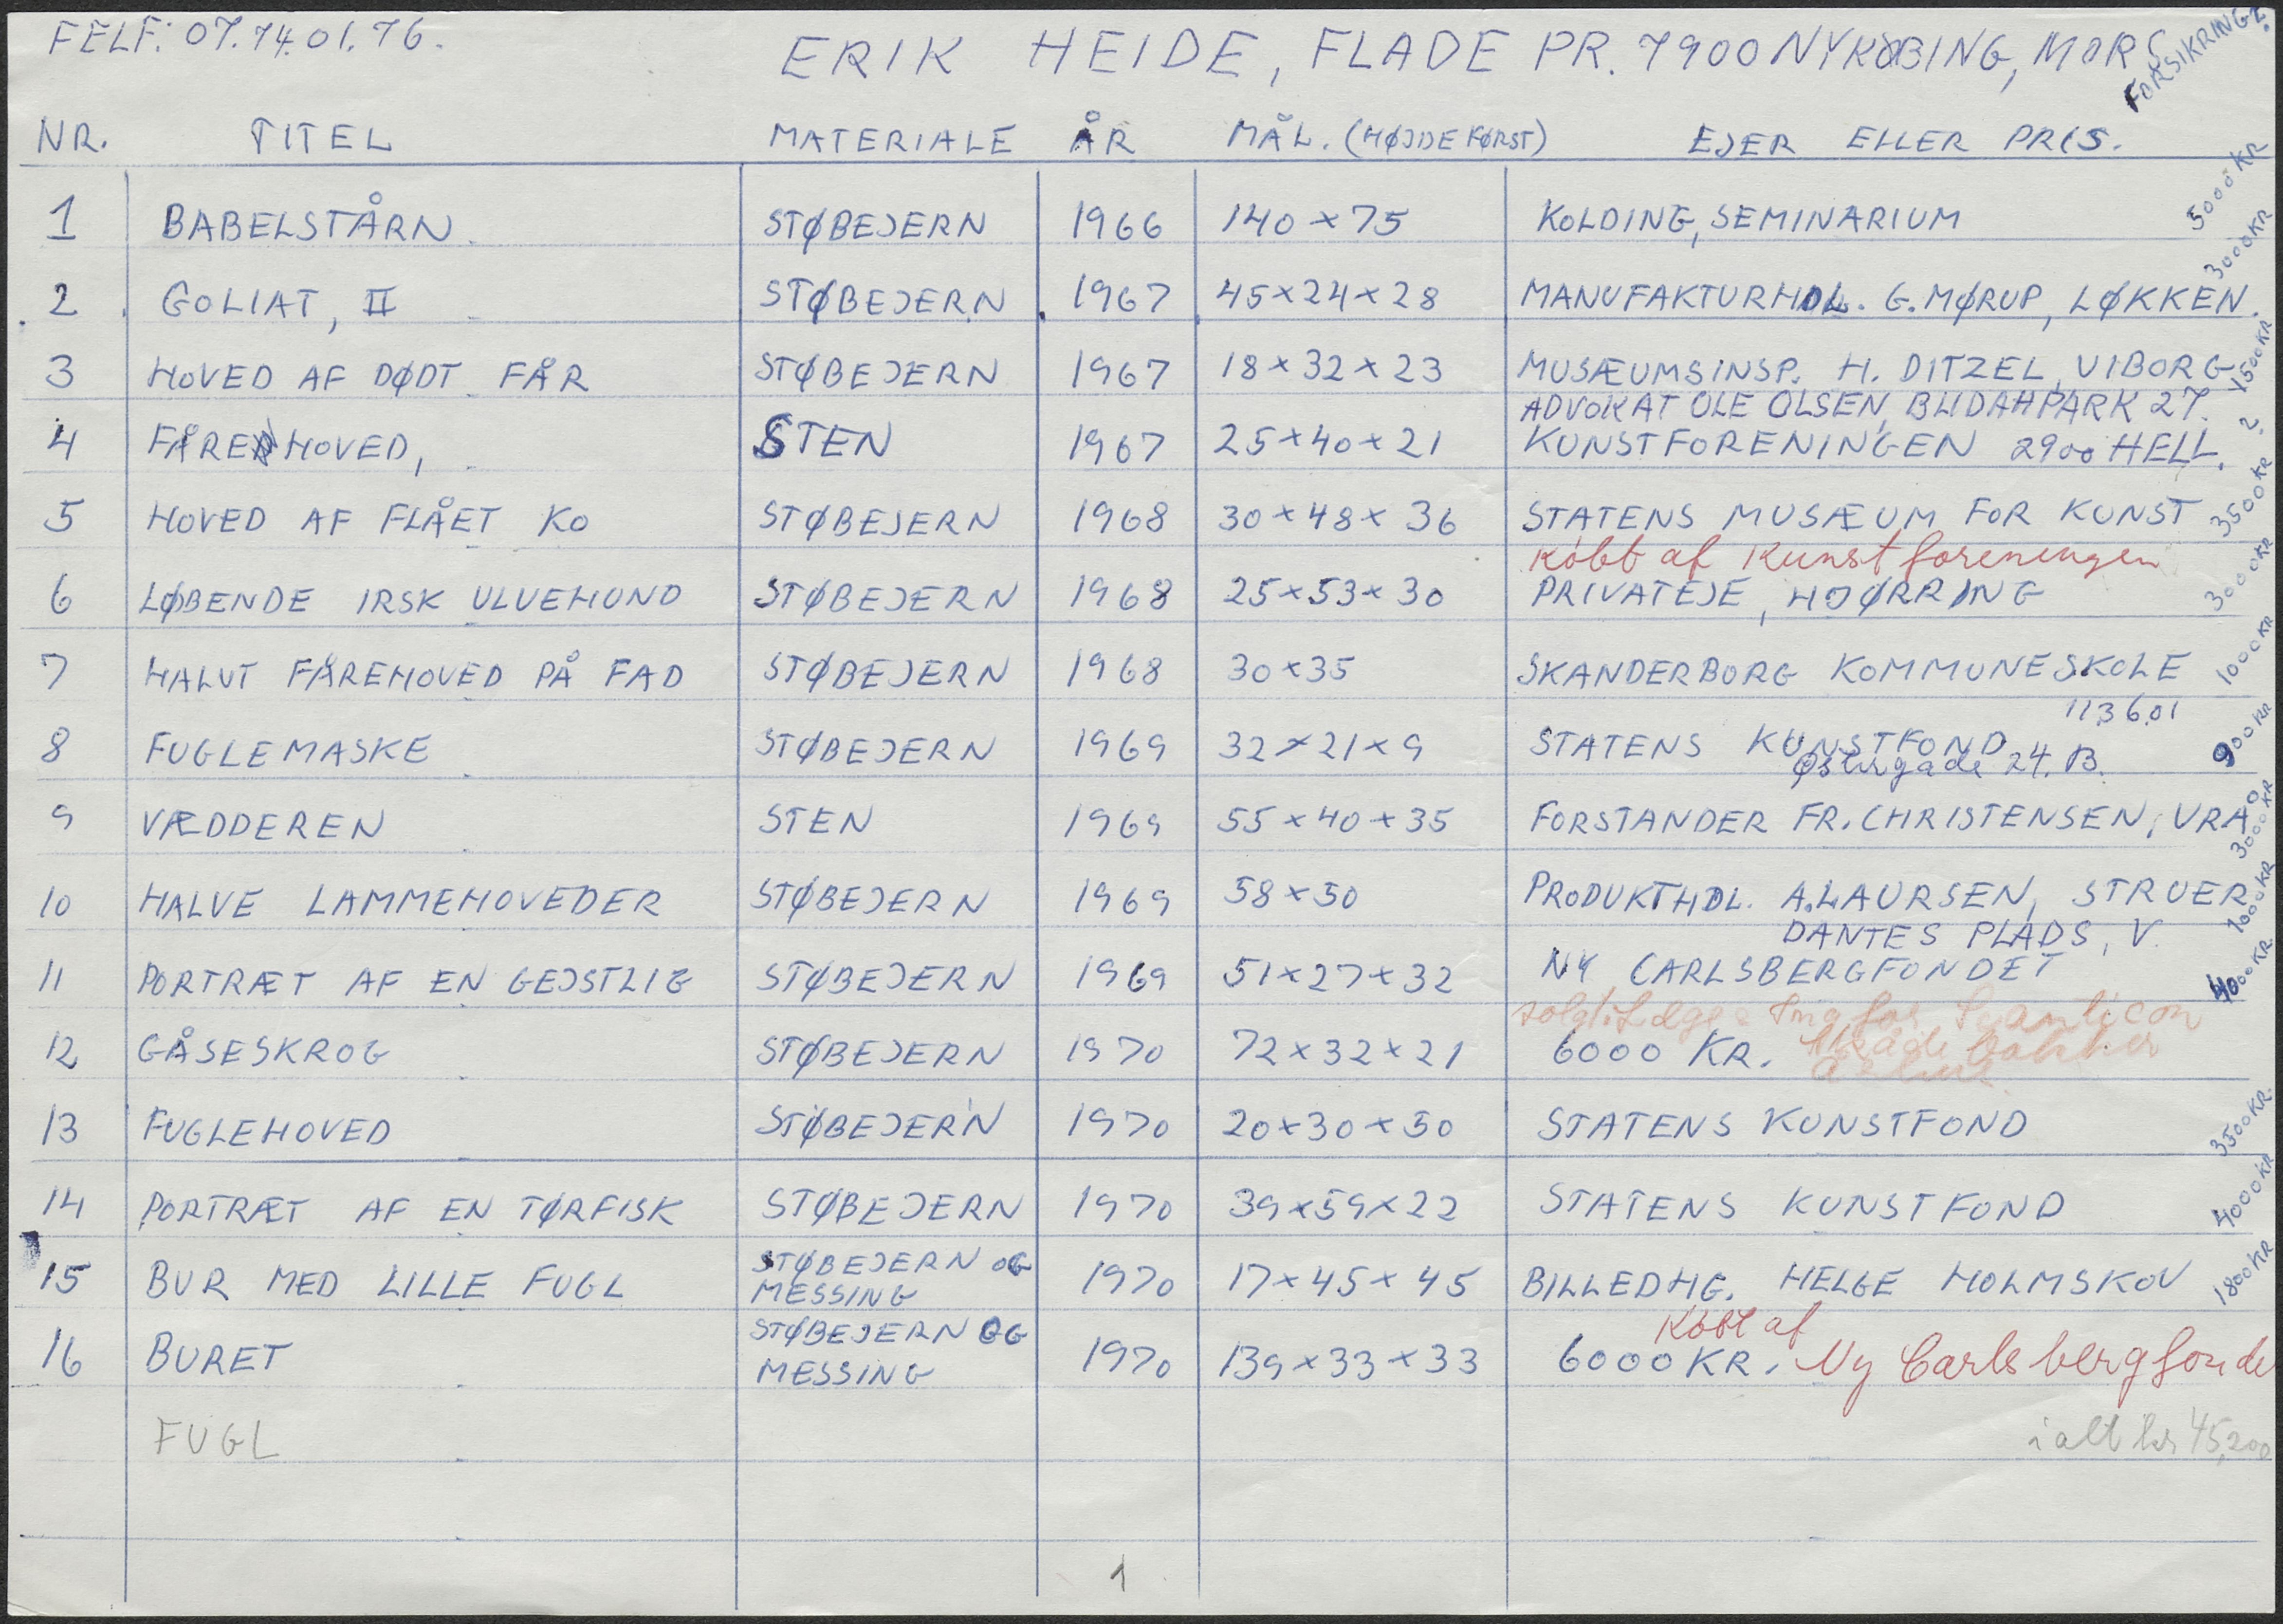 FELF: 07.74.01.76.
ERIK HEIDE, FLADE PR. 7900 NYKØBING, MORS
FORSIKRING?
NR. TITEL MATERIALE ÅR MÅL. (HØJDE FØRST) EJER ELLER PRIS.
1 BABELSTÅRN STØBEJERN 1966 140 × 75 KOLDING, SEMINARIUM 5000 KR
2 GOLIAT, II STØBEJERN 1967 45×24×28 MANUFAKTURHDL. G. MØRUP, LØKKEN. 3000 KR
3 HOVED AF DØDT FÅR STØBEJERN 1967 18×32×23 MUSÆUMSINSP. H. DITZEL, VIBORG 1500 KR
ADVOKAT OLE OLSEN, BUDAHPARK 27.
4 FÅREHOVED, STEN 1967 25×40×21 KUNSTFORENINGEN 2900 HELL. ?
5 HOVED AF FLÅET KO STØBEJERN 1968 30×48×36 STATENS MUSÆUM FOR KUNST 3500 KR
Købt af Kunstforeningen
6 LØBENDE IRSK ULVEHUND STØBEJERN 1968 25×53×30 PRIVATEJE, HJØRRING 3000 KR
7 HALVT FÅREHOVED PÅ FAD STØBEJERN 1968 30×35 SKANDERBORG KOMMUNESKOLE 1000 KR
113601
8 FUGLEMASKE STØBEJERN 1969 32×21×9 STATENS KUNSTFOND 900 KR
Østergade 24. B.
9 VÆDDEREN STEN 1969 55×40×35 FORSTANDER FR. CHRISTENSEN, VRÅ 3000 KR
10 HALVE LAMMEHOVEDER STØBEJERN 1969 58×50 PRODUKTHDL. A. LAURSEN, STRUER 1000 KR
DANTES PLADS, V.
11 PORTRÆT AF EN GEJSTLIG STØBEJERN 1969 51×27×32 NY CARLSBERGFONDET 4000 KR
solgt til
12 GÅSESKROG STØBEJERN 1970 72×32×21 6000 KR.
13 FUGLEHOVED STØBEJERN 1970 20×30×50 STATENS KUNSTFOND 3500 KR
14 PORTRÆT AF EN TØRFISK STØBEJERN 1970 39×59×22 STATENS KUNSTFOND 4000 KR
15 BUR MED LILLE FUGL STØBEJERN OG MESSING 1970 17×45×45 BILLEDHG. HELGE HOLMSKOV 1800 KR
Købt af
16 BURET STØBEJERN OG MESSING 1970 139×33×33 6000 KR. Ny Carlsbergfonde
FUGL i alt kr 45,200
1